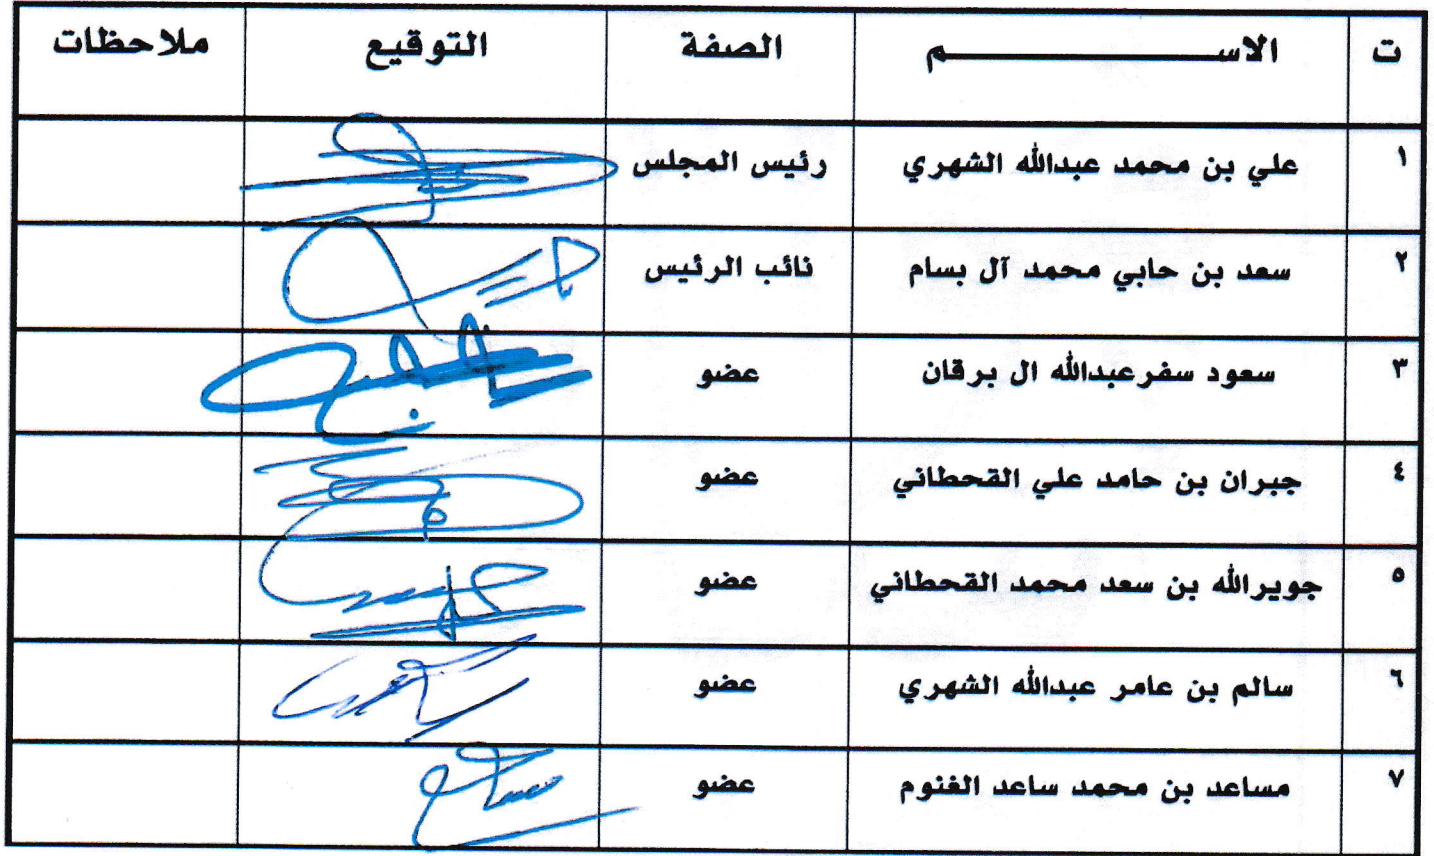 ت الاســـــــــــــم الصفة التوقيع ملاحظات
١ علي بن محمد عبدالله الشهري رئيس المجلس
٢ سعد بن حابي محمد آل بسام نائب الرئيس
٣ سعود سفرعبدالله ال برقان عضو
٤ جبران بن حامد علي القحطاني عضو
٥ جويرالله بن سعد محمد القحطاني عضو
٦ سالم بن عامر عبدالله الشهري عضو
٧ مساعد بن محمد ساعد الغنوم عضو